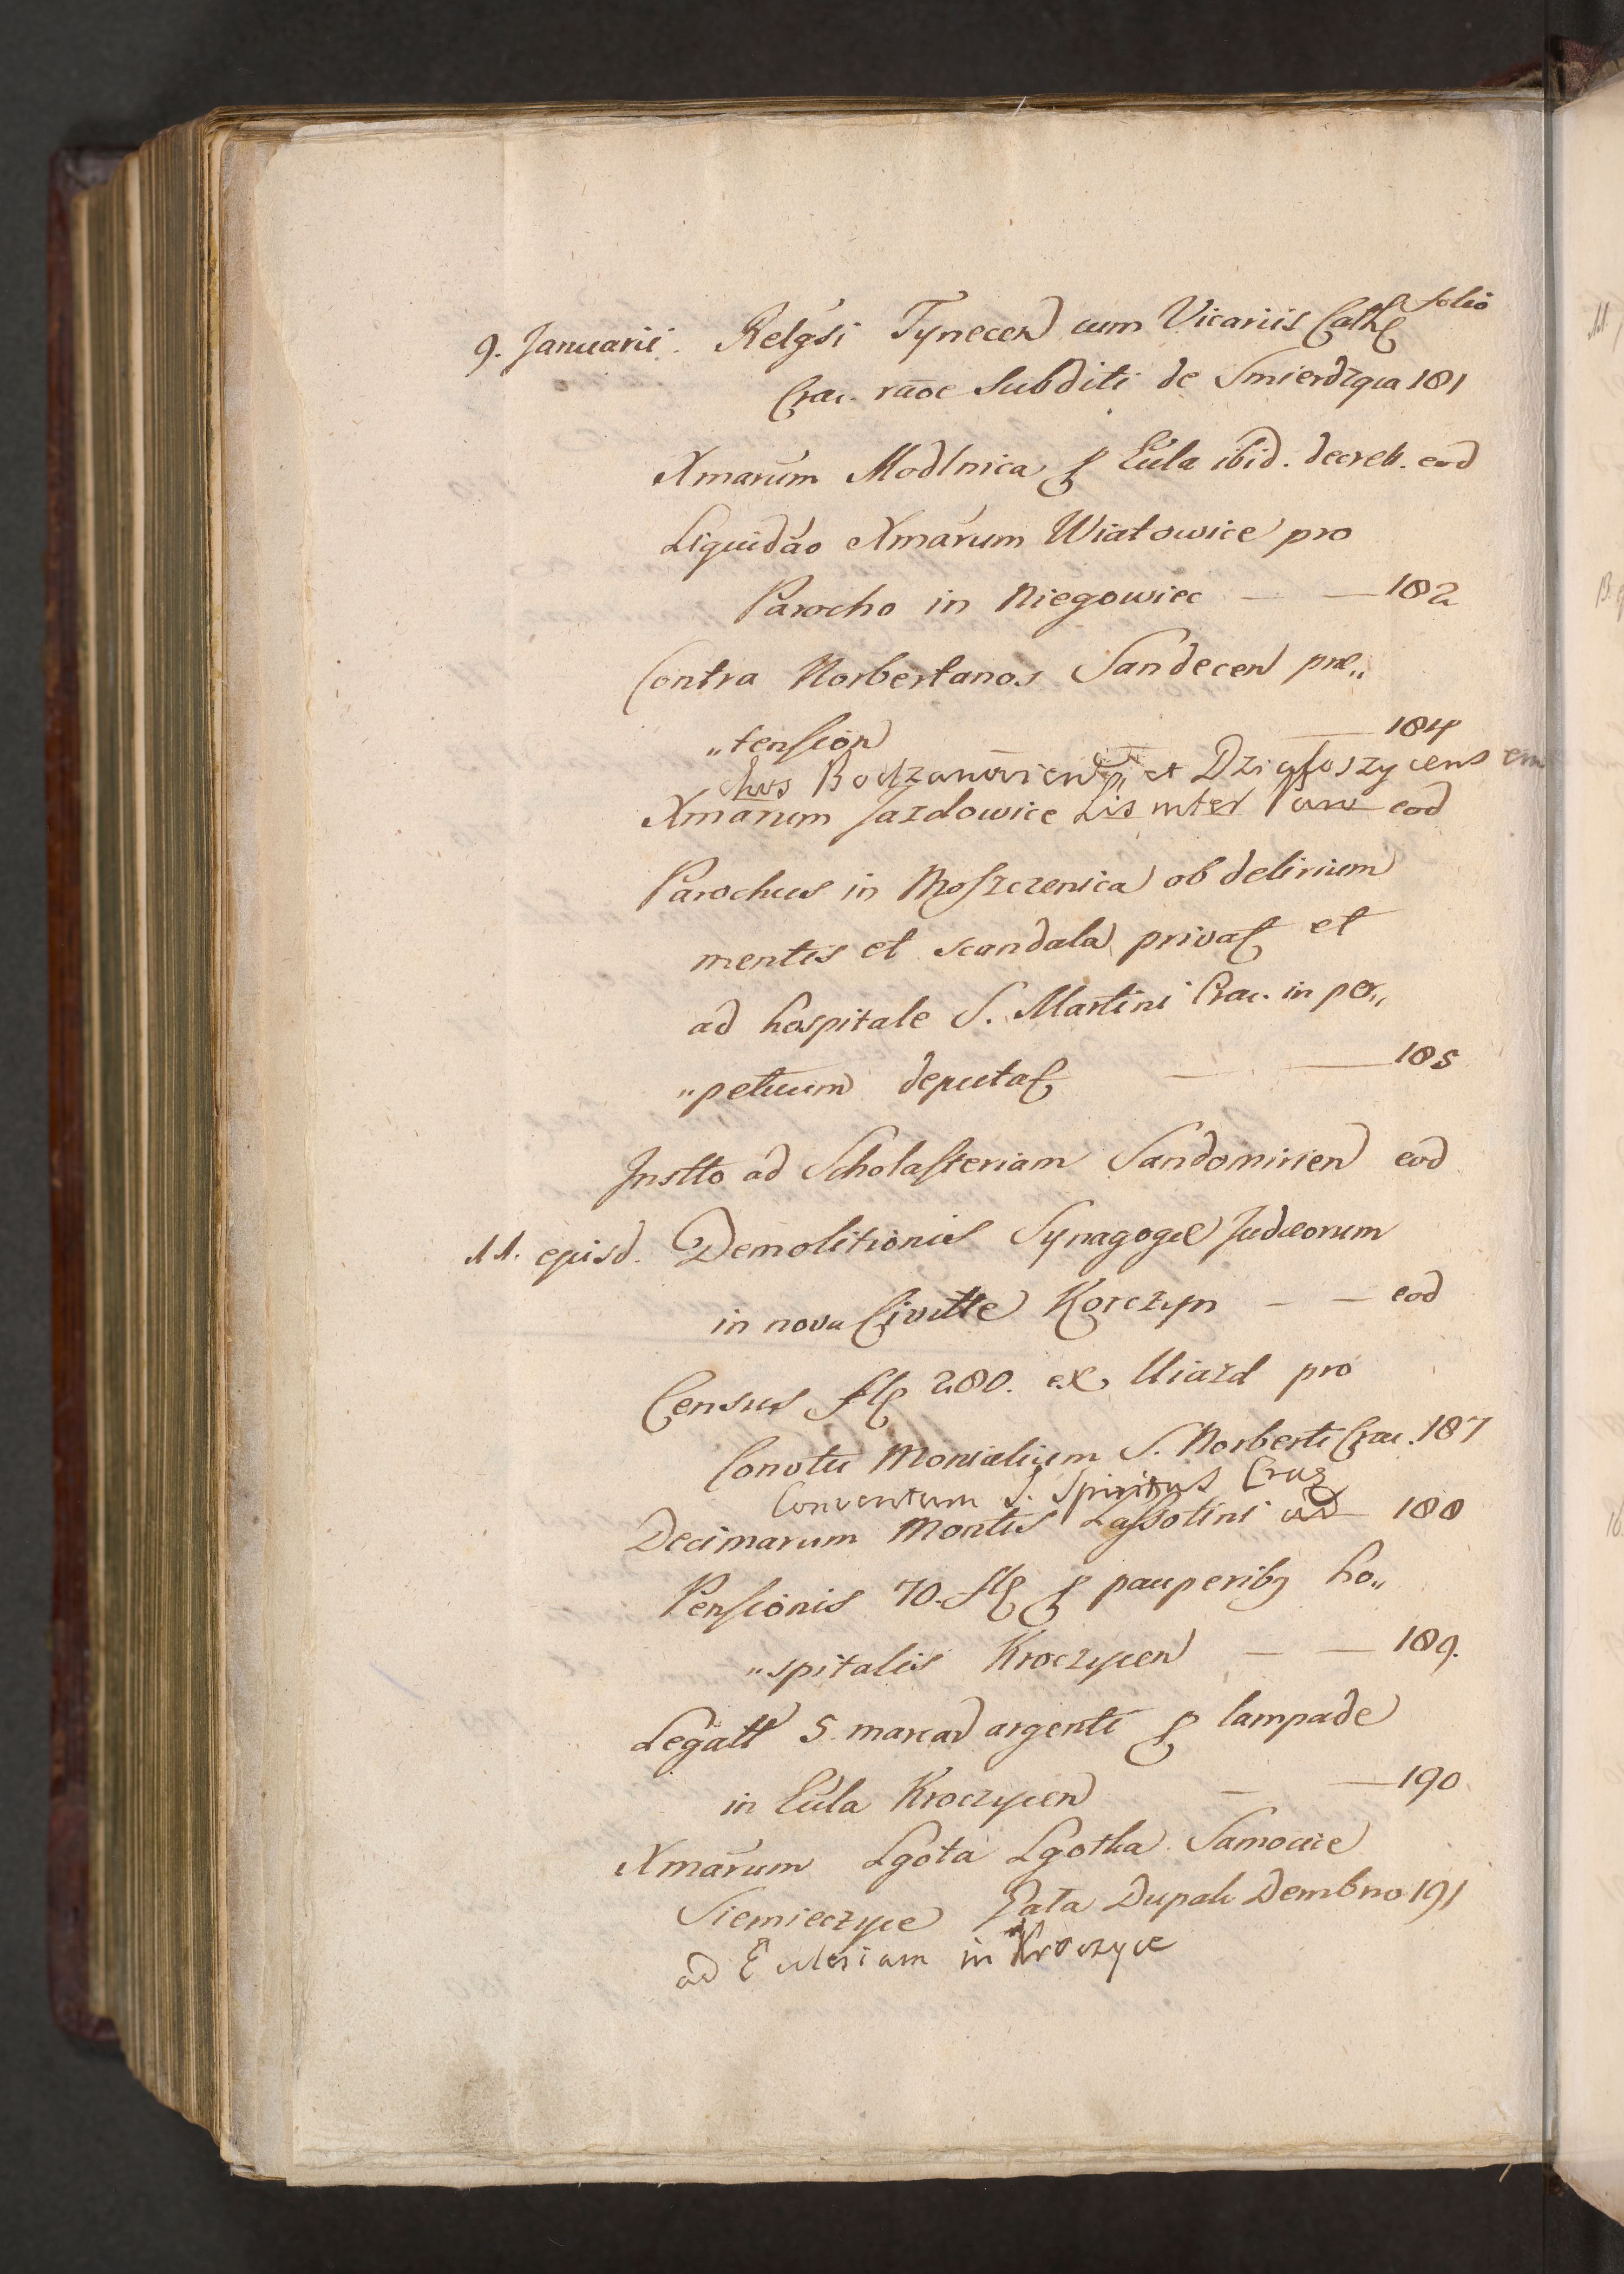 folio
9. Januarii. Relgsi Tynecen cum Vicariis Cath
Crac. raoe Subditi de Smierdzqca 181
Xmarum Modlnica Eccla ibid. decret. eod
Liquidao Xmarum Wiatowice pro
Parocho in Niegowiec — — 182
Contra Norbertanos Sandecen præ„
„tension — 184
chos Bodzanovien et Działoszycens em
Xmarum Jazdowice Lis inter Paro eod
Parochus in Moszczenica ob delirium
mentis et scandala privat et
ad hospitale S. Martini Crac. in per„
„petuum deputat — — 185
Instto ad Scholasteriam Sandomirien eod
11. ejusd. Demolitionis Synagogæ Judæorum
in nova Civitte Korczyn — — eod
Census fl 280. ex Uiazd pro
Convtu Monialium S. Norberti Crac. 187
Conventum S. Spiritus Crac
Decimarum Montis Lassotini ad 188
Pensionis 70. fl pauperibq ho„
„spitalis Kroczycen — — 189.
Legatt 5 marcar argenti lampade
in Eccla Kroczycen — — 190
Xmarum Lgota Lgotka Samocice
Siemieczyce Dupak Dembno 191
ad Ecclesiam in Kroczyce